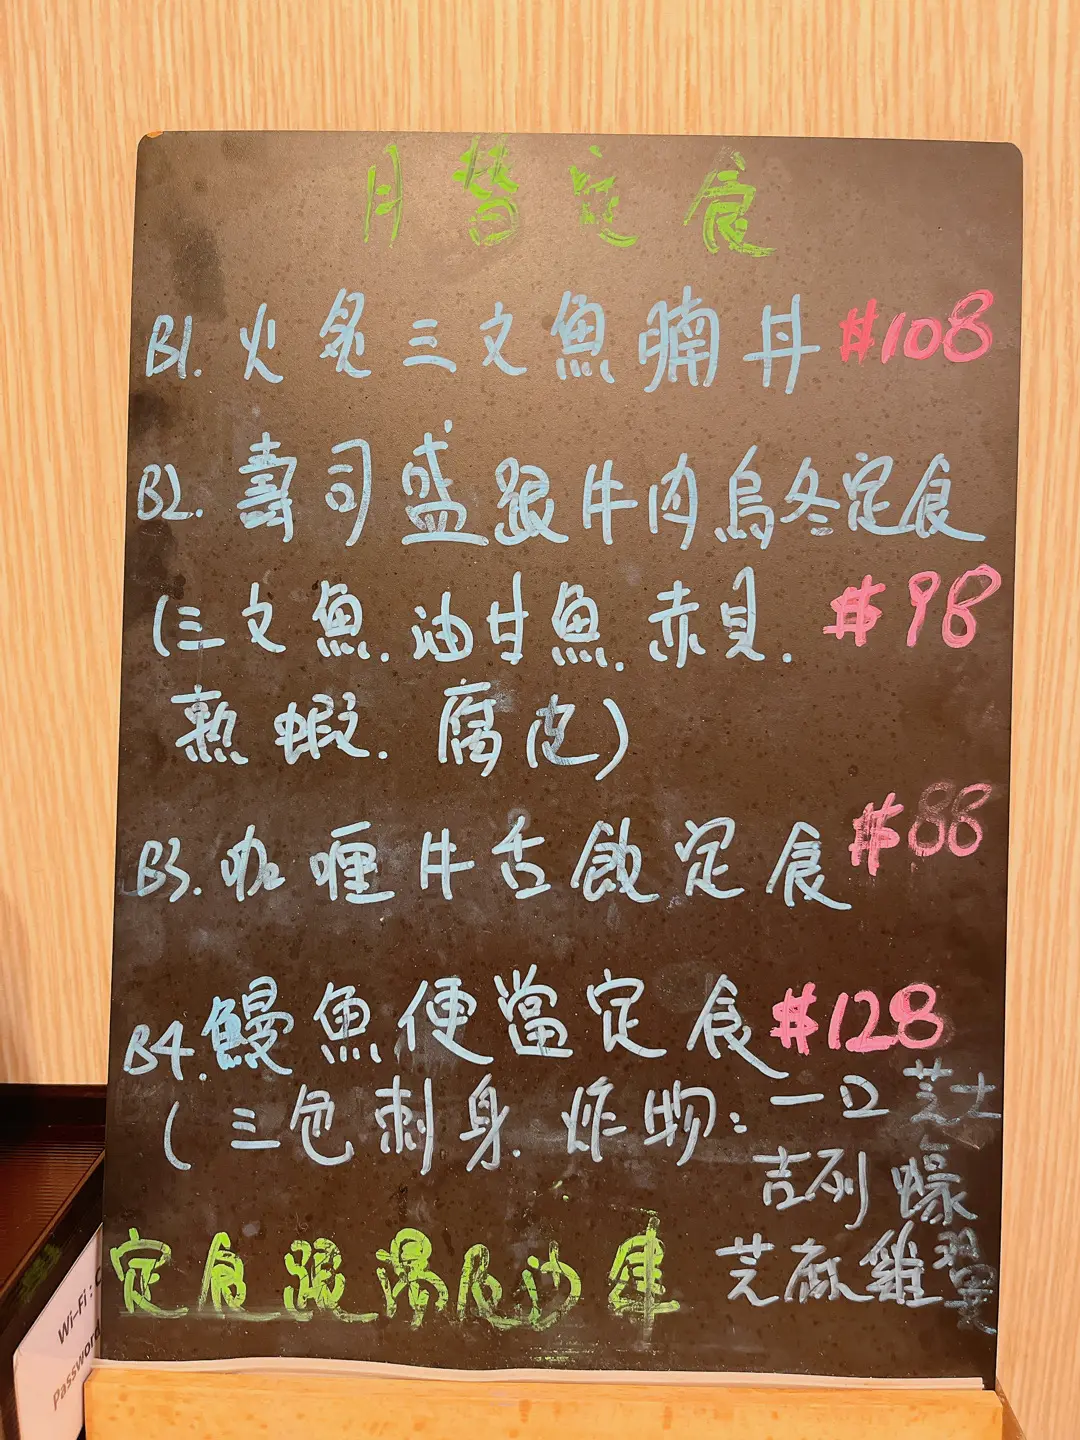 月替定食
B1. 火炙三文魚腩丼 #108
B2. 壽司盛跟牛肉烏冬定食
(三文魚. 油甘魚. 赤貝. #98
熟蝦. 腐皮)
B3. 咖喱牛舌飯定食 #88
B4. 鰻魚便當定食 #128
(三色刺身. 炸物: 一口芝士
吉列蠔
芝麻雞翼
定食跟湯及沙律
Wi-Fi :
Password